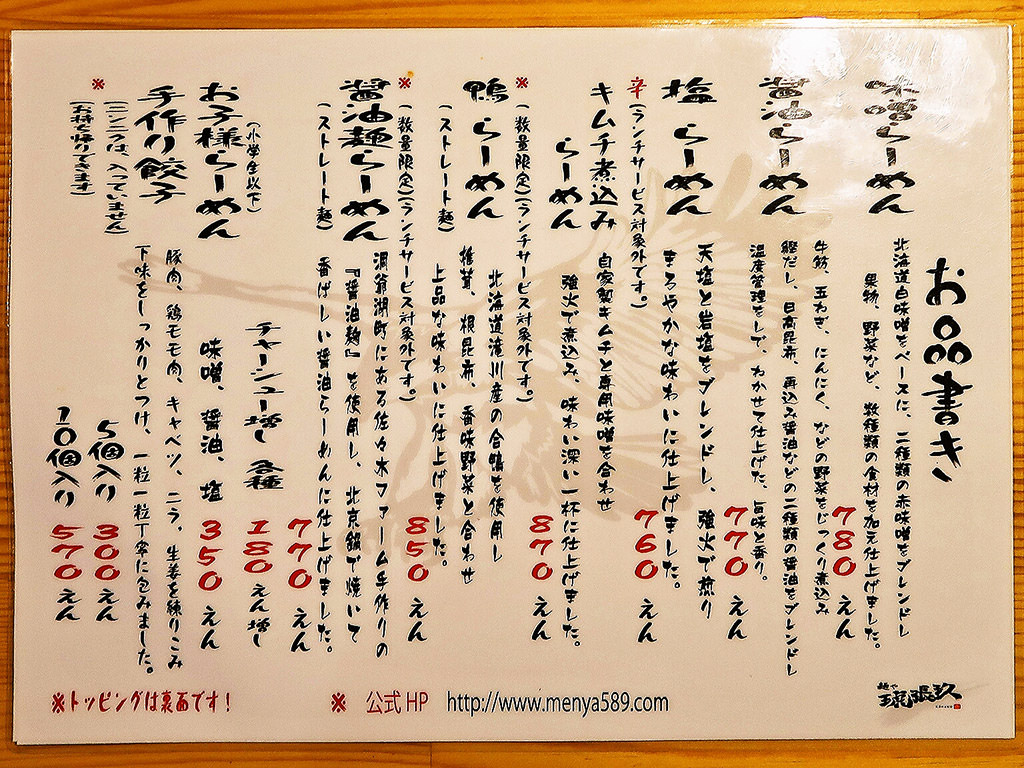 お品書き
味噌らーめん
北海道白味噌をベースに、二種類の赤味噌をブレンドし
果物、野菜など、数種類の食材を加え仕上げました。
780えん
醤油らーめん
牛筋、玉ねぎ、にんにく、などの野菜をじっくり煮込み
鰹だし、日高昆布、再込み醤油などの二種類の醤油をブレンドし
温度管理をして、わかせて仕上げた、旨味と香り。
770えん
塩らーめん
天塩と岩塩をブレンドし、強火で煎り
まろやかな味わいに仕上げました。
760えん
辛(ランチサービス対象外です。)
キムチ煮込み
らーめん
自家製キムチと専用味噌を合わせ
強火で煮込み、味わい深い一杯に仕上げました。
870えん
※(数量限定)(ランチサービス対象外です。)
鴨らーめん
(ストレート麺)
北海道滝川産の合鴨を使用し
椎茸、根昆布、香味野菜と合わせ
上品な味わいに仕上げました。
850えん
※(数量限定)(ランチサービス対象外です。)
醤油麺らーめん
(ストレート麺)
洞爺湖町にある佐々木ファーム手作りの
『醤油麹』を使用し、北京鍋で焼いて
香ばしい醤油らーめんに仕上げました。
770えん
チャーシュー増し各種
180えん増し
お子様らーめん
(小学生以下)
味噌、醤油、塩
350えん
手作り餃子
豚肉、鶏モモ肉、キャベツ、ニラ、生姜を練りこみ
下味をしっかりとつけ、一粒一粒丁寧に包みました。
※(ニンニクは、入っていません)
(お持ち帰りできます)
5個入り300えん
10個入り570えん
※トッピングは裏面です!
※ 公式HP http://www.menya589.com
麺や
琥張玖